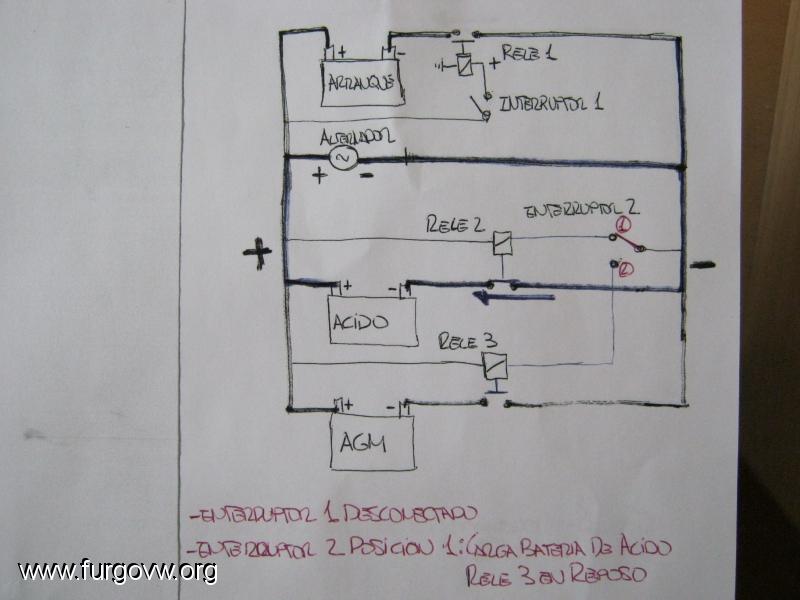 + - RELE 1
+
ARRANQUE
INTERRUPTOR 1
ALTERNADOR
~
+ -
RELE 2 INTERRUPTOR 2
1
+ -
2
+ -
ACIDO
RELE 3
+ -
AGM
-INTERRUPTOR 1 DESCONECTADO
-INTERRUPTOR 2 POSICION 1: CARGA BATERIA DE ACIDO
RELE 3 EN REPOSO
www.furgovw.org